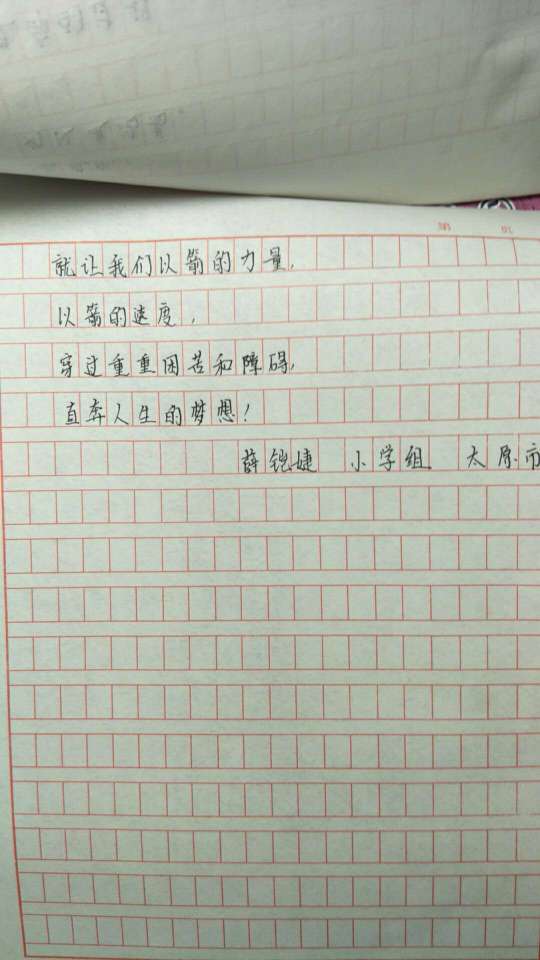 就让我们以箭的力量,
以箭的速度,
穿过重重困苦和障碍,
直奔人生的梦想!
薛铠婕 小学组 太原市